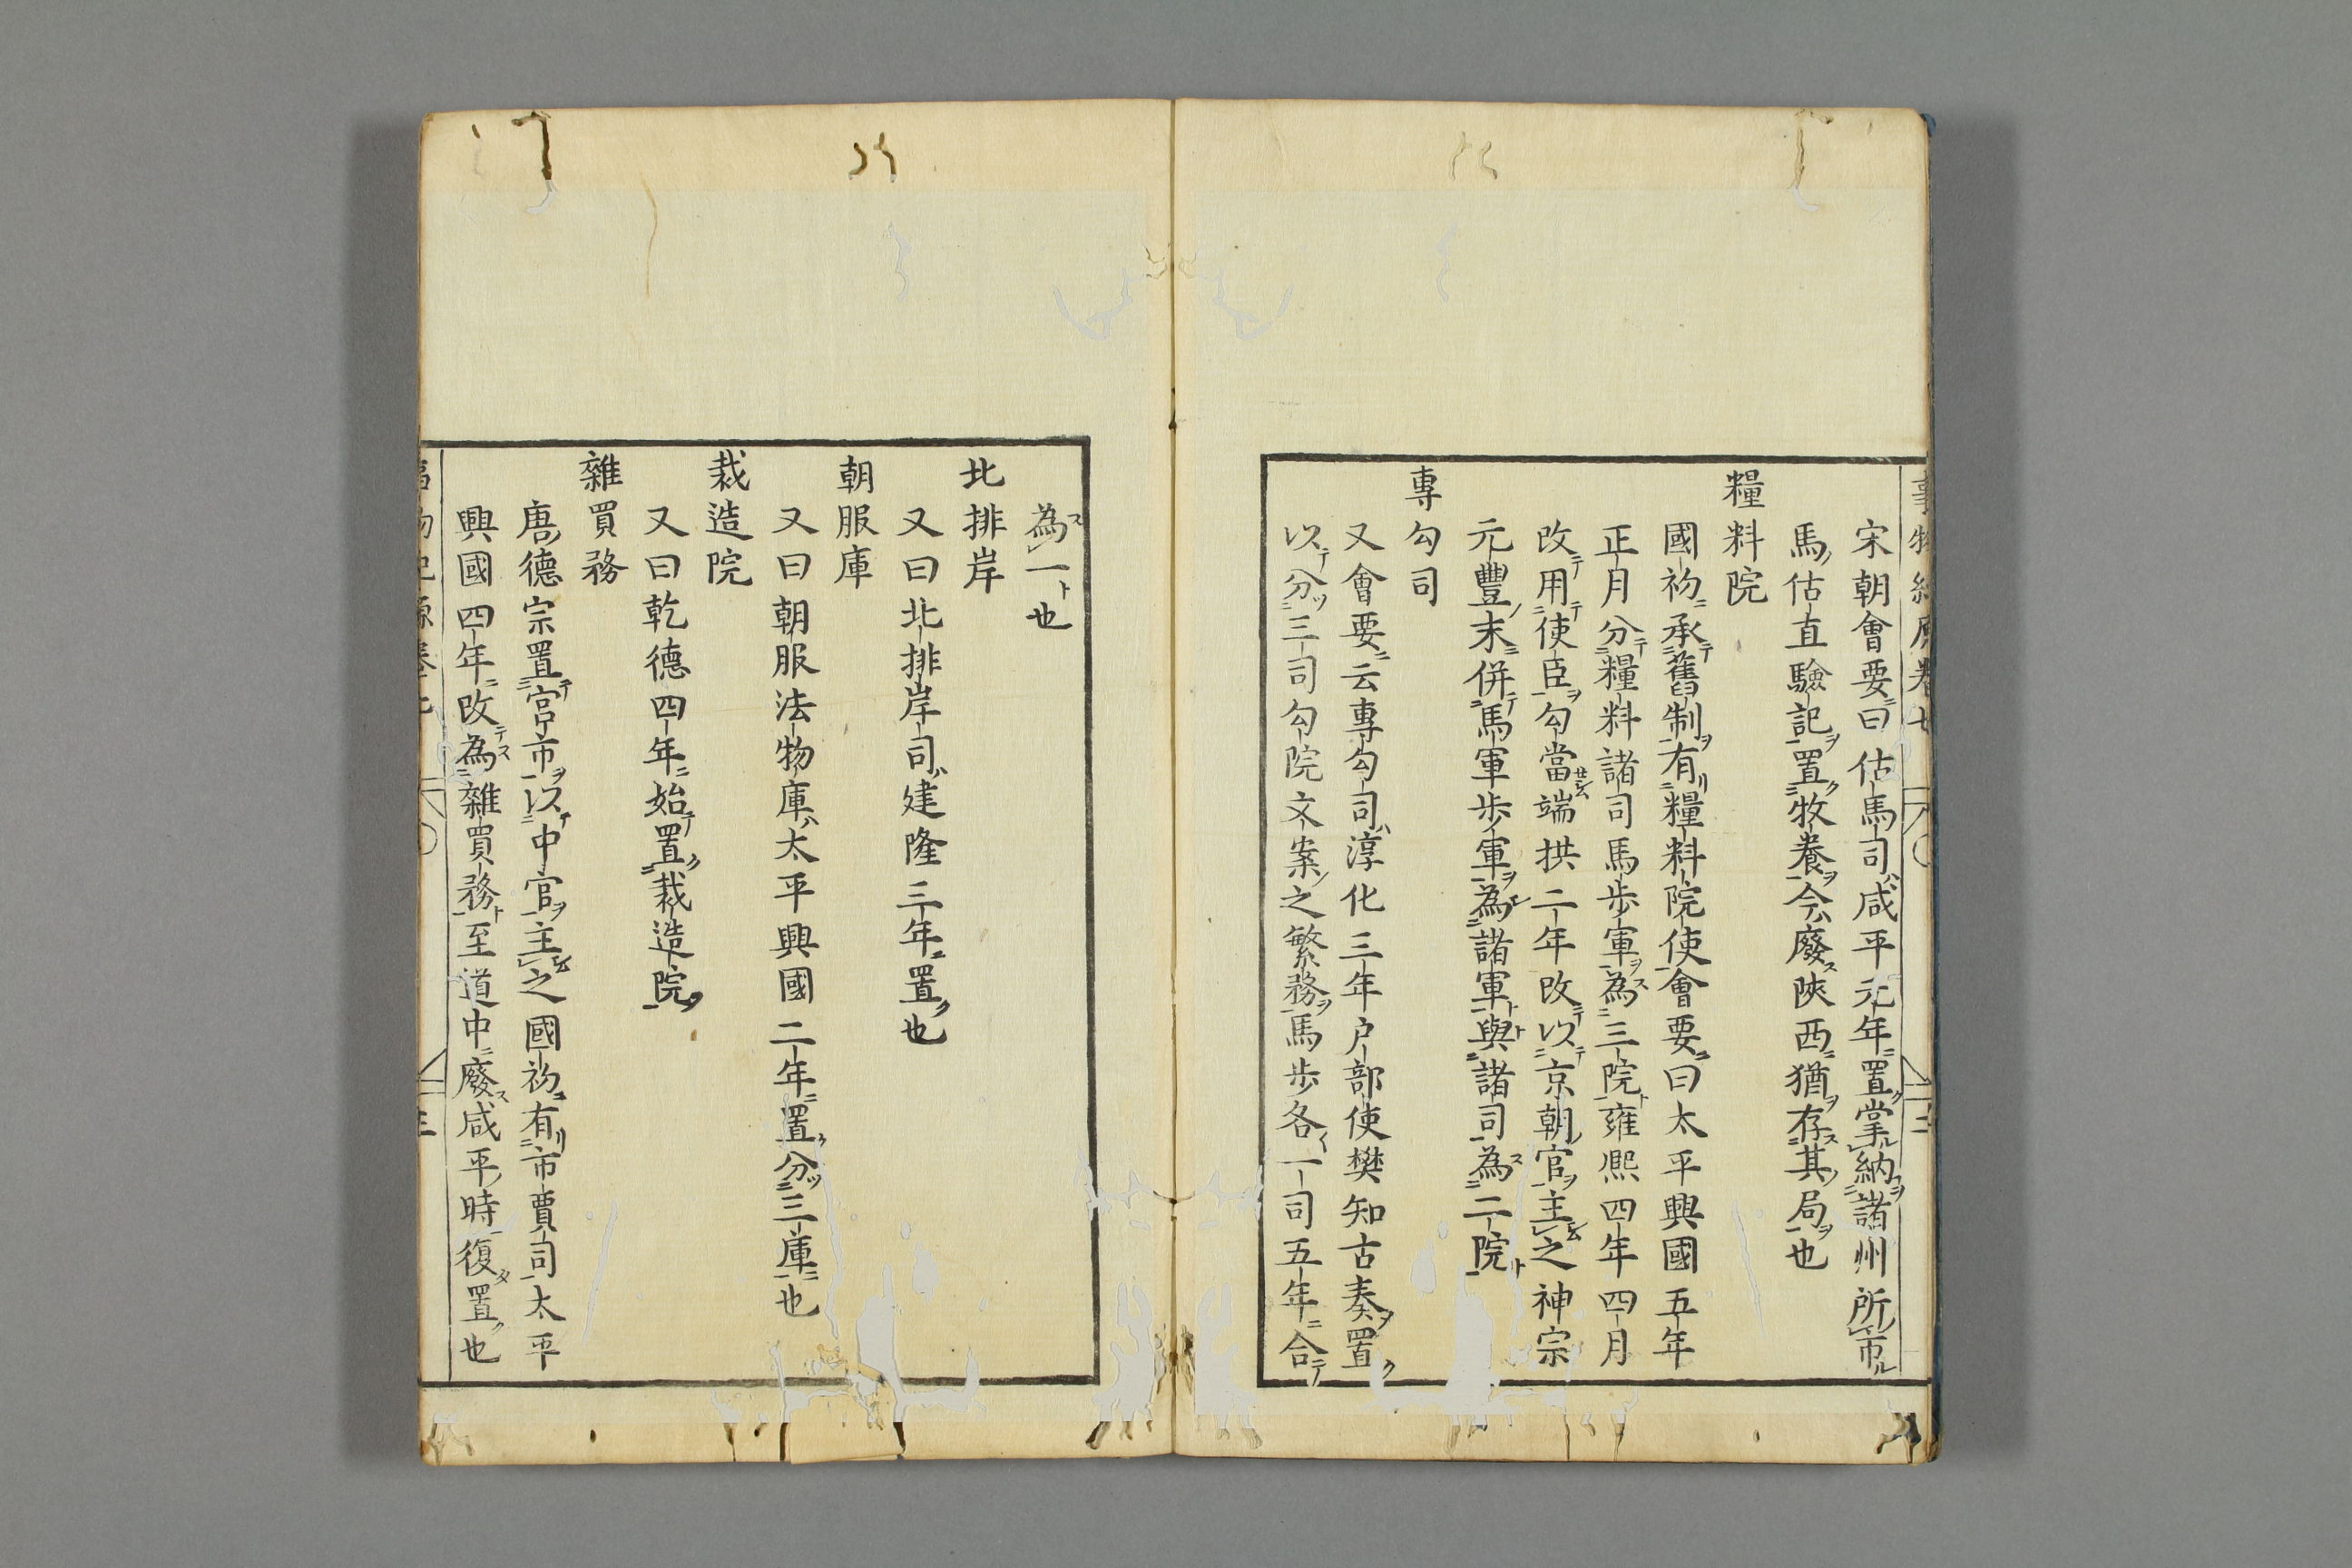 事物紀原卷七
宋朝會要曰估馬司咸平元年置掌納諸州所市
馬估直驗記置牧養今廢陝西猶存其局也
糧料院
國初承舊制有糧料院使會要曰太平興國五年
正月分糧料諸司馬步軍為三院雍熙四年四月
改用使臣勾當端拱二年改以京朝官主之神宗
元豐末併馬軍步軍為諸軍與諸司為二院
專勾司
又會要云專勾司淳化三年户部使樊知古奏置
以分三司勾院文案之繁務馬步各一司五年合
為一也
北排岸
又曰北排岸司建隆三年置也
朝服庫
又曰朝服法物庫太平興國二年置分三庫也
裁造院
又曰乾德四年始置裁造院
雜買務
唐德宗置宮市以中官主之國初有市買司太平
興國四年改為雜買務至道中廢咸平時復置也